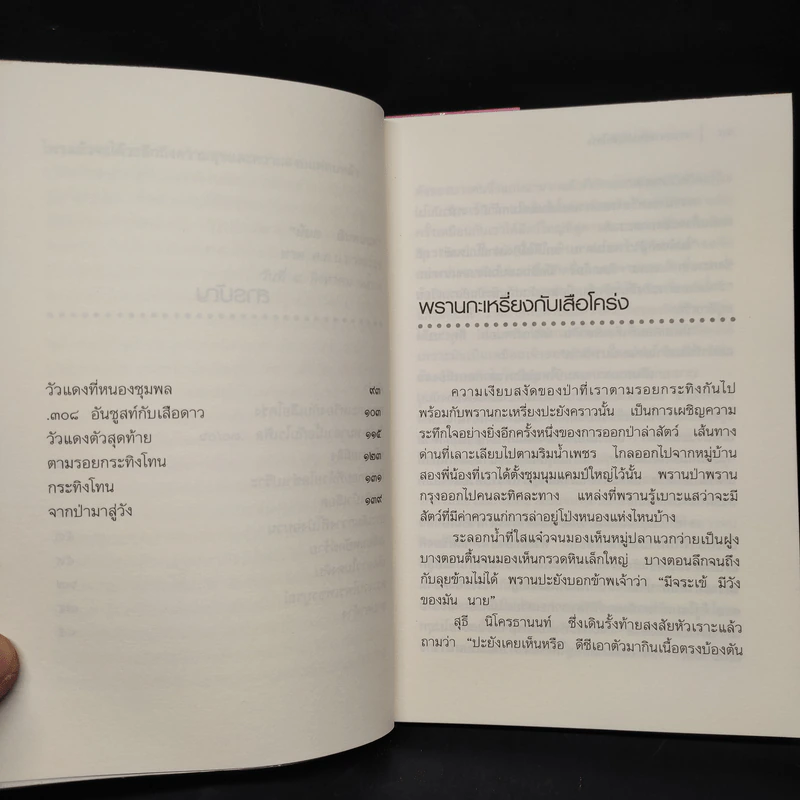 วัวแดงที่หนองชุมพล ๙๓
.๓๐๘ อันซูสท์กับเสือดาว ๑๐๓
วัวแดงตัวสุดท้าย ๑๑๕
ตามรอยกระทิงโทน ๑๒๓
กระทิงโทน ๑๓๑
จากป่ามาสู่วัง ๑๓๙
พรานกะเหรี่ยงกับเสือโคร่ง
ความเงียบสงัดของป่าที่เราตามรอยกระทิงกันไป
พร้อมกับพรานกะเหรี่ยงปะยังคราวนั้น เป็นการเผชิญความ
ระทึกใจอย่างยิ่งอีกครั้งหนึ่งของการออกป่าล่าสัตว์ เส้นทาง
ด่านที่เลาะเลียบไปตามริมน้ำเพชร ไกลออกไปจากหมู่บ้าน
สองพี่น้องที่เราได้ตั้งชุมนุมแคมป์ใหญ่ไว้นั้น พรานป่าพราน
กรุงออกไปคนละทิศละทาง แหล่งที่พรานรู้เบาะแสว่าจะมี
สัตว์ที่มีค่าควรแก่การล่าอยู่โป่งหนองแห่งไหนบ้าง
ระลอกน้ำที่ใสแจ๋วจนมองเห็นหมู่ปลาแวกว่ายเป็นฝูง
บางตอนตื้นจนมองเห็นกรวดหินเล็กใหญ่ บางตอนลึกจนถึง
กับลุยข้ามไม่ได้ พรานปะยังบอกข้าพเจ้าว่า “มีจระเข้ มีวัง
ของมัน นาย”
สุธี นิโครธานนท์ ซึ่งเดินรั้งท้ายสงสัยหัวเราะแล้ว
ถามว่า “ปะยังเคยเห็นหรือ ดีซีเอาตัวมากินเนื้อตรงบ้องตัน